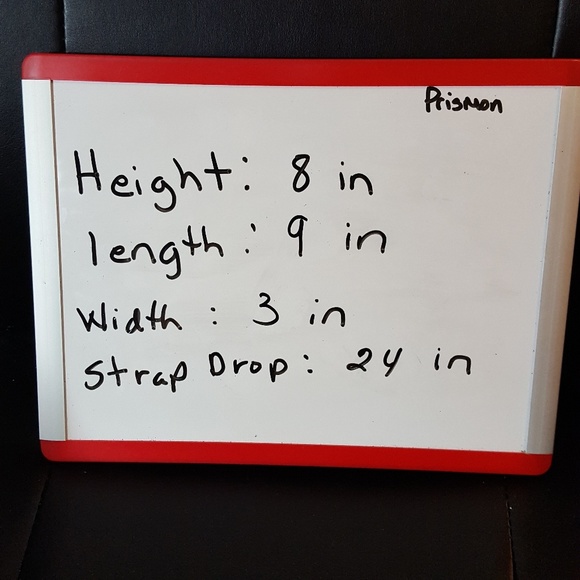 Prismon
Height: 8 in
length: 9 in
Width: 3 in
Strap Drop: 24 in